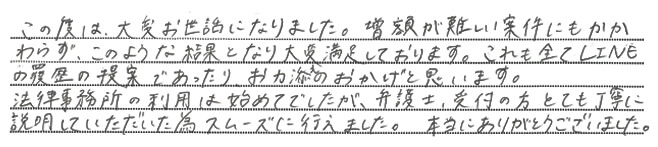 この度は、大変お世話になりました。 増額が難しい案件にもかか
わらず、このような結果となり大変満足しております。これも全てLINE
の履歴の提案であったりお力添のおかげと思います。
法律事務所の利用は始めてでしたが、弁護士、受付の方とても丁寧に
説明していただいた為スムーズに行えました。 本当にありがとうございました。